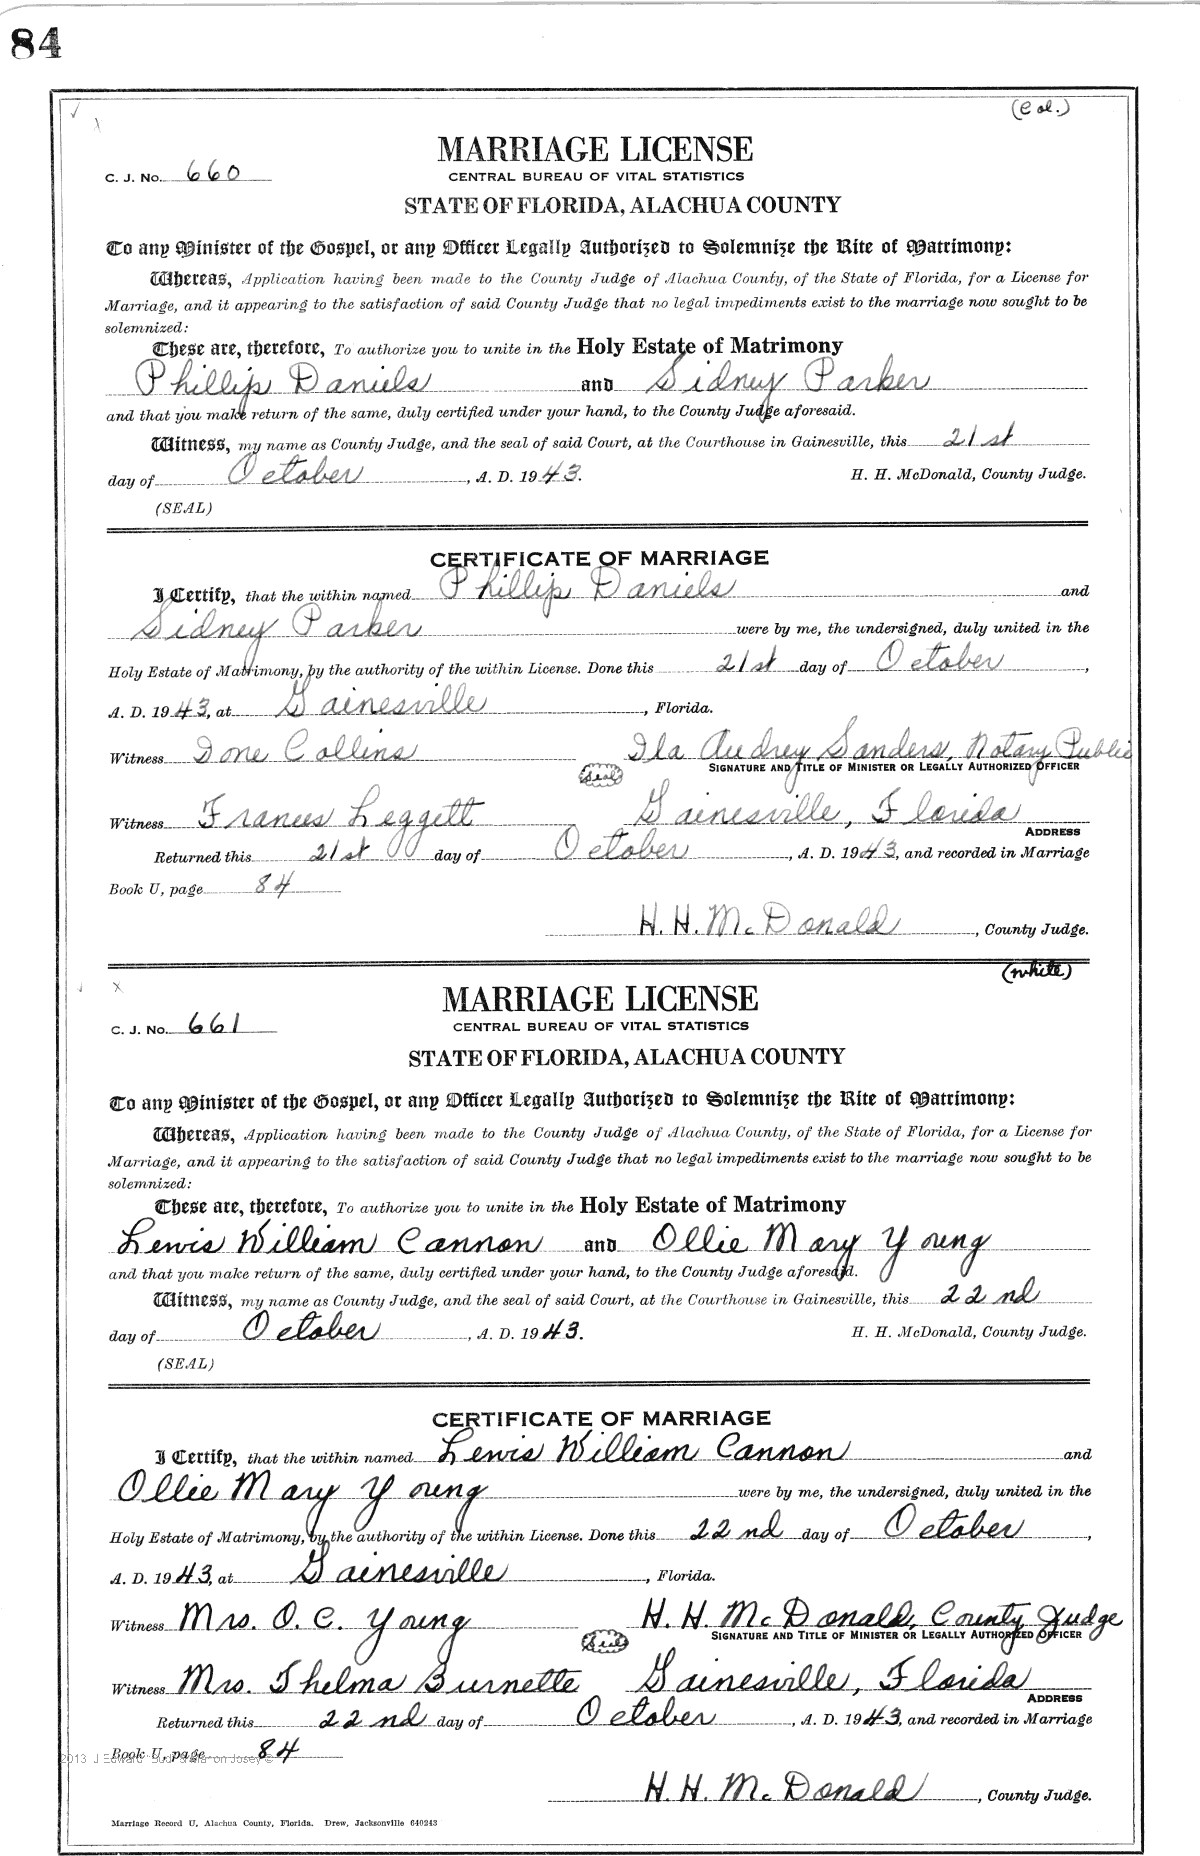 84
(Col.)
MARRIAGE LICENSE
C. J. No. 660
CENTRAL BUREAU OF VITAL STATISTICS
STATE OF FLORIDA, ALACHUA COUNTY
To any Minister of the Gospel, or any Officer Legally Authorized to Solemnize the Rite of Matrimony:
Whereas, Application having been made to the County Judge of Alachua County, of the State of Florida, for a License for
Marriage, and it appearing to the satisfaction of said County Judge that no legal impediments exist to the marriage now sought to be
solemnized:
These are, therefore, To authorize you to unite in the Holy Estate of Matrimony
Phillip Daniels and Sidney Parker
and that you make return of the same, duly certified under your hand, to the County Judge aforesaid.
Witness, my name as County Judge, and the seal of said Court, at the Courthouse in Gainesville, this 21st
day of October, A. D. 1943. H. H. McDonald, County Judge.
(SEAL)
CERTIFICATE OF MARRIAGE
I Certify, that the within named Phillip Daniels and
Sidney Parker were by me, the undersigned, duly united in the
Holy Estate of Matrimony, by the authority of the within License. Done this 21st day of October,
A. D. 1943, at Gainesville, Florida.
Witness Done Collins Ila Audrey Sanders, Notary Public
Seal SIGNATURE AND TITLE OF MINISTER OR LEGALLY AUTHORIZED OFFICER
Witness Frances Leggett Gainesville, Florida
ADDRESS
Returned this 21st day of October, A. D. 1943, and recorded in Marriage
Book U, page 84
H. H. McDonald, County Judge.
(white)
MARRIAGE LICENSE
C. J. No. 661
CENTRAL BUREAU OF VITAL STATISTICS
STATE OF FLORIDA, ALACHUA COUNTY
To any Minister of the Gospel, or any Officer Legally Authorized to Solemnize the Rite of Matrimony:
Whereas, Application having been made to the County Judge of Alachua County, of the State of Florida, for a License for
Marriage, and it appearing to the satisfaction of said County Judge that no legal impediments exist to the marriage now sought to be
solemnized:
These are, therefore, To authorize you to unite in the Holy Estate of Matrimony
Lewis William Cannon and Ollie Mary Young
and that you make return of the same, duly certified under your hand, to the County Judge aforesaid.
Witness, my name as County Judge, and the seal of said Court, at the Courthouse in Gainesville, this 22nd
day of October, A. D. 1943. H. H. McDonald, County Judge.
(SEAL)
CERTIFICATE OF MARRIAGE
I Certify, that the within named Lewis William Cannon and
Ollie Mary Young were by me, the undersigned, duly united in the
Holy Estate of Matrimony, by the authority of the within License. Done this 22nd day of October,
A. D. 1943, at Gainesville, Florida.
Witness Mrs. O. C. Young H. H. McDonald, County Judge
Seal SIGNATURE AND TITLE OF MINISTER OR LEGALLY AUTHORIZED OFFICER
Witness Mrs. Thelma Burnette Gainesville, Florida
ADDRESS
Returned this 22nd day of October, A. D. 1943, and recorded in Marriage
Book U, page 84
2013 J Edward
H. H. McDonald, County Judge.
Marriage Record U, Alachua County, Florida. Drew, Jacksonville 640243